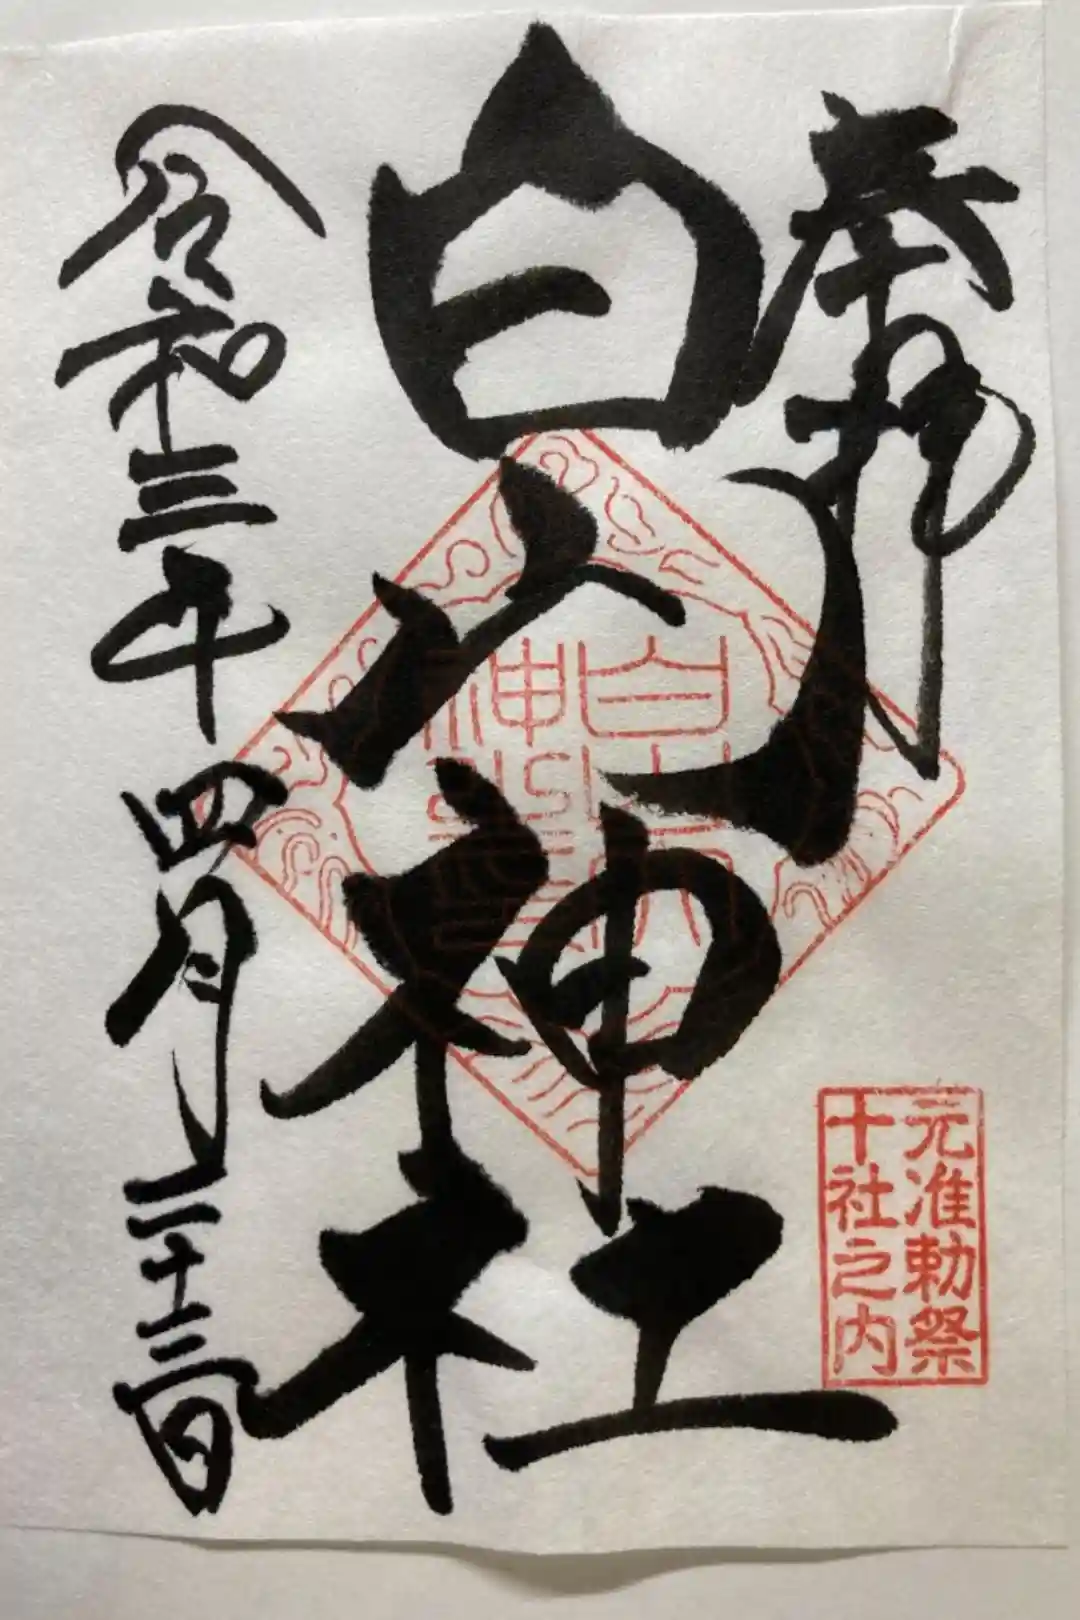 奉拝
白山神社
令和三年四月二十三日
元准勅祭
十社之内
白山
神社